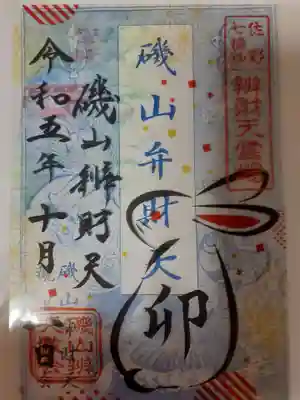 佐野
七福神
辨財天霊場
磯山弁財天
卯
磯山辨財天
令和五年十月一日
磯山